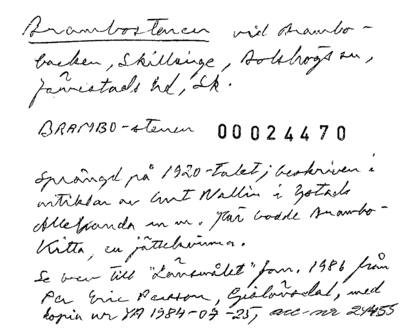 Brambostenen vid Brambo-
backen, Skillinge, Bolshögs sn,
Järrestads hd, Sk.
BRAMBO-stenen 00024470
Sprängd på 1920-talet; beskriven i
artiklar av Curt Wallin i Ystads
Allehanda m m. Här bodde Brambo-
Kitta, en jättekvinna.
Se även till "Lånsmålet" 1986 från
Per Eric Persson, Gislövsdal, med
kopia ur YA 1984-07-25, acc-nr 29455